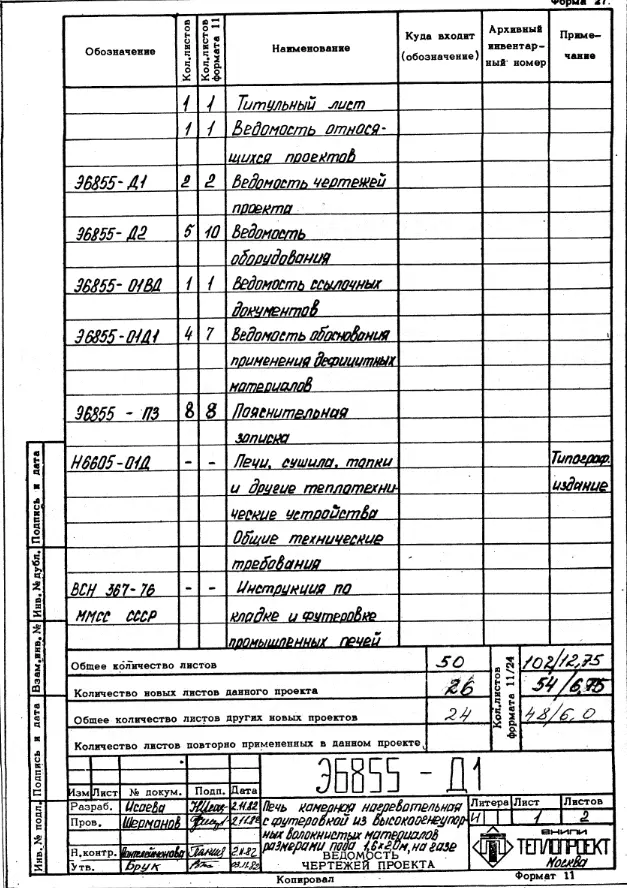 Форма 27.
Обозначение Кол.листов Кол.листов формата 11 Наименование Куда входит (обозначение) Архивный инвентарный номер Примечание
1 1 Титульный лист
1 1 Ведомость относя-
щихся проектов
Э6855-Д1 2 2 Ведомость чертежей
проекта
Э6855-Д2 5 10 Ведомость
оборудования
Э6855-01ВД 1 1 Ведомость ссылочных
документов
Э6855-01Д1 4 7 Ведомость обоснования
применения дефицитных
материалов
Э6855 - ПЗ 8 8 Пояснительная
записка
Н6605-01Д - - Печи, сушила, топки Типограф.
и другие теплотехни- издание
ческие устройства
Общие технические
требования
ВСН 367-76 - - Инструкция по
ММСС СССР кладке и футеровке
промышленных печей
Общее количество листов 50 Кол.листов формата 11/24 102/12,75
Количество новых листов данного проекта 26 54/6,75
Общее количество листов других новых проектов 24 48/6,0
Количество листов повторно примененных в данном проекте
Э6855 - Д1
Изм Лист № докум. Подп. Дата
Разраб. Исаева 2.11.82 Печь камерная нагревательная Литера Лист Листов
Пров. Шерманов с футеровкой из высокоогнеупор- И 1 2
ных волокнистых материалов ВНИПИ
размерами пода 1,6х2,0м, на газе ТЕПЛОПРОЕКТ
Н.контр. Пантелеймонова ВЕДОМОСТЬ Москва
Утв. Брук ЧЕРТЕЖЕЙ ПРОЕКТА
Копировал Формат 11
Инв.№ подл. Подпись и дата Взам.инв.№ Инв.№ дубл. Подпись и дата